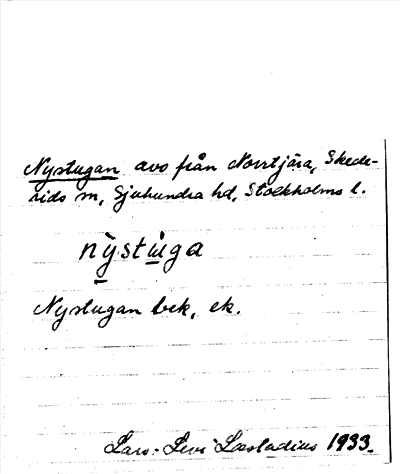 Nystugan avs från Norrtjära, Skede-
rids sn, Sjuhundra hd, Stockholms l.
nỳstù̱ga
Nystugan bek, ek.
Lars-Levi Læstadius 1933.